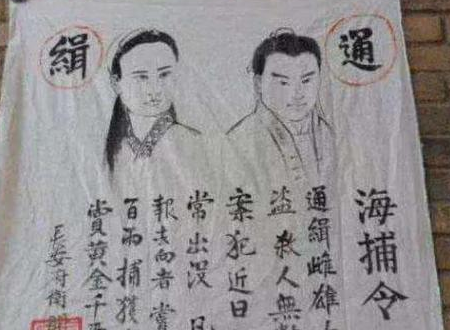 通緝
海捕令
通緝雌雄大
盜殺人無
案犯近日
常出没
報去向者賞
百兩捕獲
賞黄金千
長安府衙